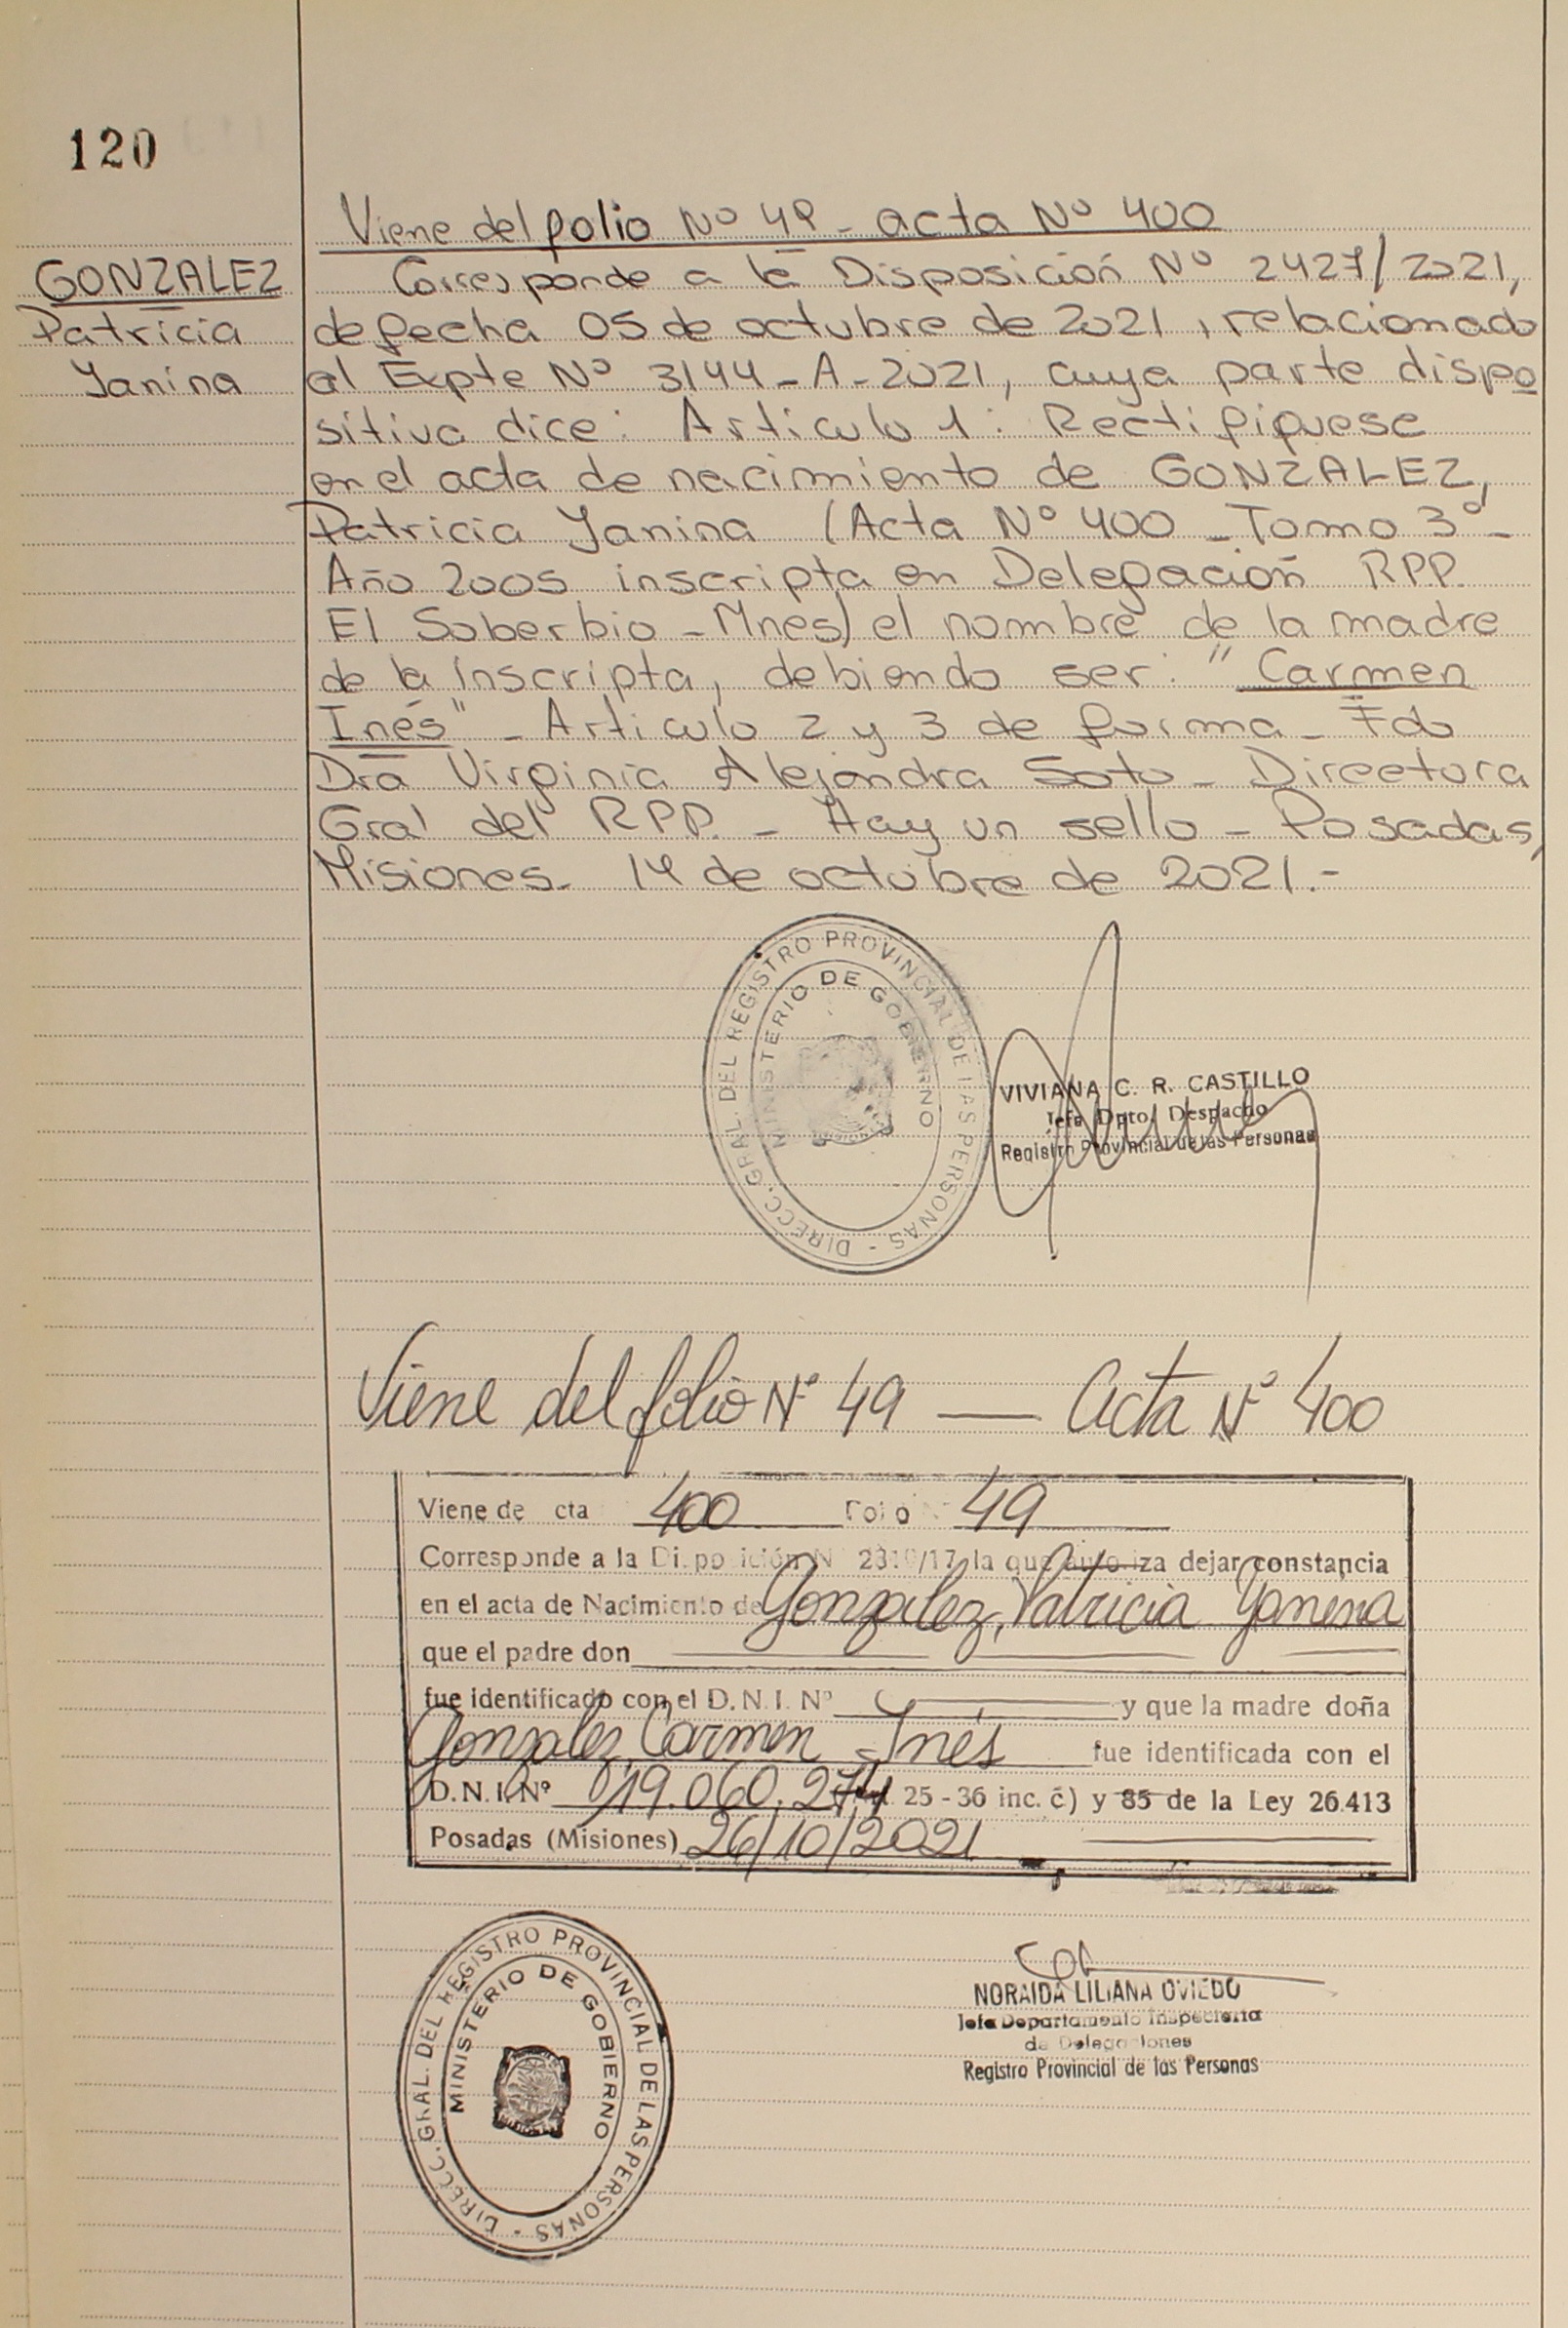 120
Viene del folio Nº 49 - acta Nº 400
GONZALEZ
Patricia
Yanina
Corresponde a la Disposición Nº 2427/2021,
de fecha 05 de octubre de 2021, relacionado
al Expte Nº 3144-A-2021, cuya parte dispo
sitiva dice: Articulo 1: Rectifiquese
en el acta de nacimiento de GONZALEZ,
Patricia Yanina (Acta Nº 400 - Tomo 3º -
Año 2005 inscripta en Delegación RPP.
El Soberbio - Mnes) el nombre de la madre
de la inscripta, debiendo ser: "Carmen
Inés" - Articulo 2 y 3 de forma - Fdo
Dra Virginia Alejandra Soto - Directora
Gral del RPP. - Hay un sello - Posadas,
Misiones. 14 de octubre de 2021.-
DIRECC. GRAL. DEL REGISTRO PROVINCIAL DE LAS PERSONAS -
MINISTERIO DE GOBIERNO
VIVIANA C. R. CASTILLO
Jefa Dpto. Despacho
Registro Provincial de las Personas
Viene del folio Nº 49 — Acta Nº 400
Viene de cta 400 Folio 49
Corresponde a la Disposición N 2310/17 la que autoriza dejar constancia
en el acta de Nacimiento de Gonzalez, Patricia Yanina
que el padre don
fue identificado con el D.N.I. Nº y que la madre doña
Gonzalez, Carmen Inés fue identificada con el
D.N.I. Nº 19.060.274 25 - 36 inc. c) y 85 de la Ley 26.413
Posadas (Misiones) 26/10/2021
DIRECC. GRAL. DEL REGISTRO PROVINCIAL DE LAS PERSONAS -
MINISTERIO DE GOBIERNO
NORAIDA LILIANA OVIEDO
Jefa Departamento Inspectoria
de Delegaciones
Registro Provincial de las Personas